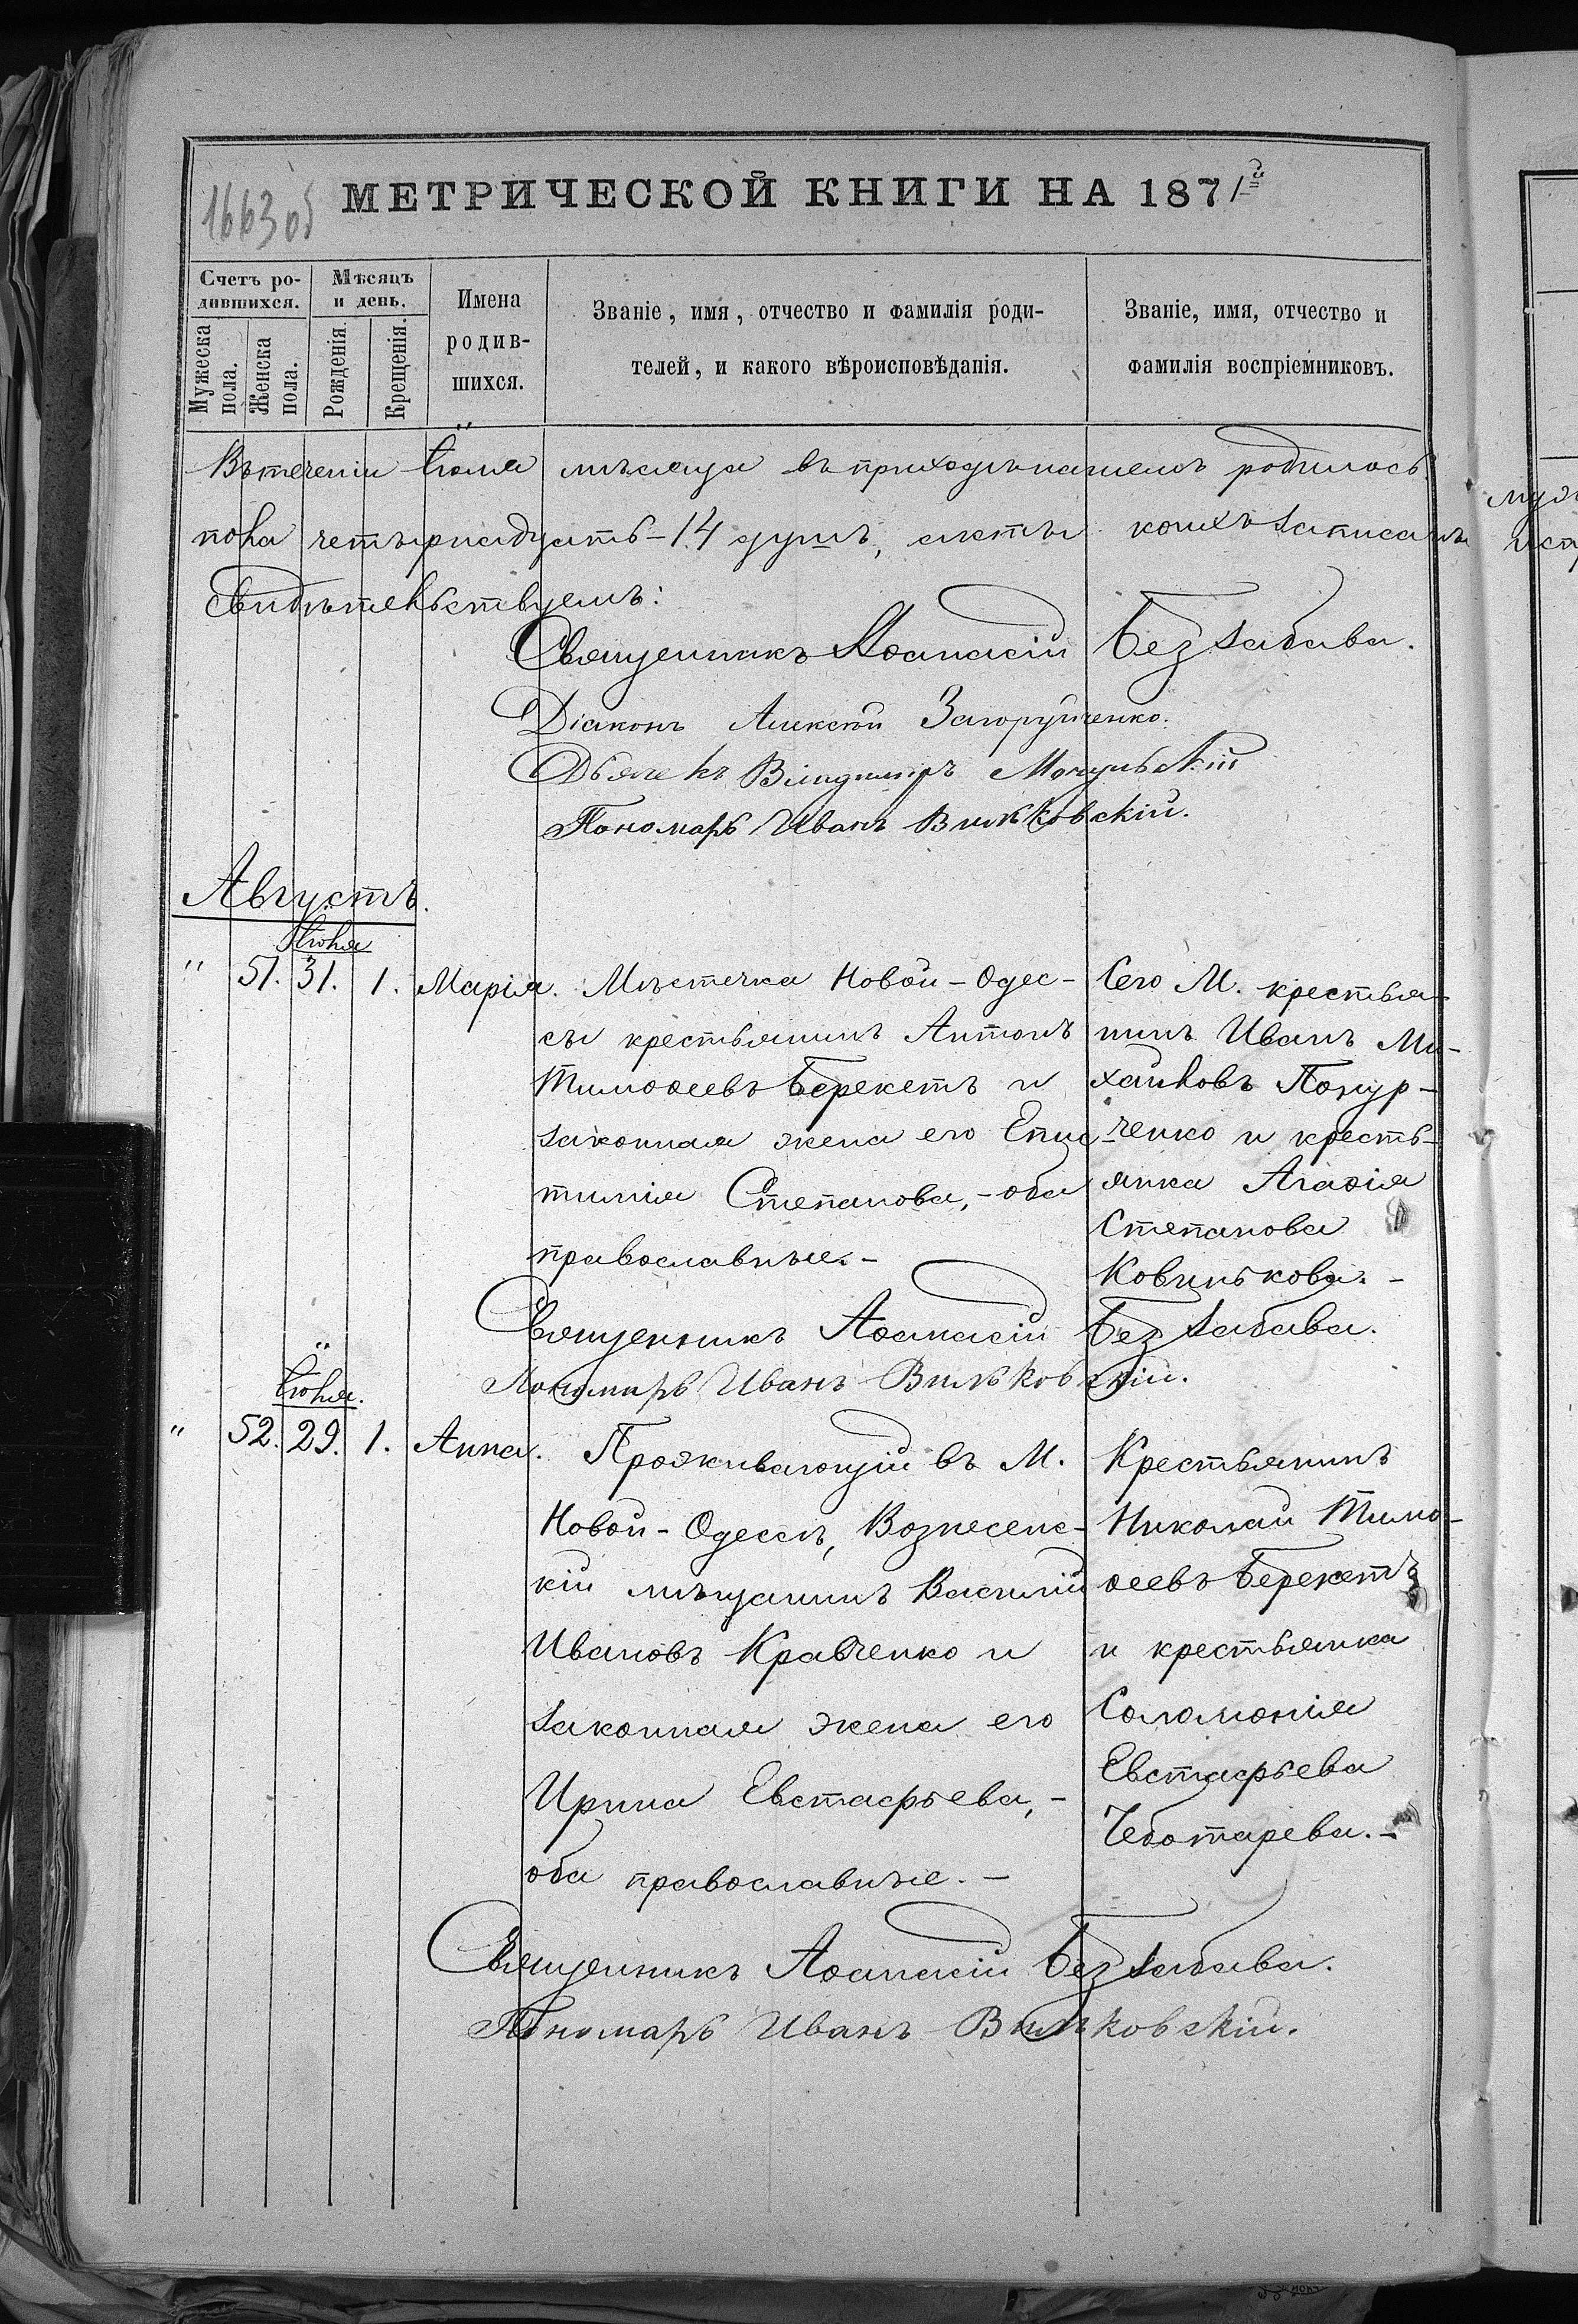 1663 об
МЕТРИЧЕСКОЙ КНИГИ НА 1871й
Счетъ ро-
дившихся.
Мѣсяцъ
и день.
Имена
родив-
шихся.
Званіе, имя, отчество и фамилія роди-
телей, и какого вѣроисповѣданія.
Званіе, имя, отчество и
фамилія воспріемниковъ.
Мужеска
пола.
Женска
пола.
Рожденія.
Крещенія.
Въ теченіи Іюля мѣсяца въ приходѣ нашемъ родилось
пола четырнадцать - 14 душъ, акты коихъ записаны
Свидѣтельствуемъ:
Священникъ Аѳанасій Беззабава.
Діаконъ Алексѣй Загоруйченко.
Дьячекъ Владимиръ Могульскій
Пономарь Иванъ Вильковскій.
Августъ.
Іюля
" 51. 31. 1. Марія.
Мѣстечка Новой-Одес-
сы крестьянинъ Антонъ
Тимоѳеевъ Берекетъ и
законная жена его Епис-
тимія Степанова, - оба
православные. -
Сего М. крестья-
нинъ Иванъ Ми-
хайловъ Понур-
ченко и кресть-
янка Агаѳія
Степанова
Ковинькова. -
Священникъ Аѳанасій Беззабава.
Пономарь Иванъ Вильковскій.
Іюля.
" 52. 29. 1. Анна.
Проживающій въ М.
Новой-Одессѣ, Вознесенс-
кій мѣщанинъ Василій
Ивановъ Кравченко и
законная жена его
Ирина Евстафьева, -
оба православные. -
Крестьянинъ
Николай Тимо-
ѳеевъ Берекетъ
и крестьянка
Соломонія
Евстафьева
Чеботарева. -
Священникъ Аѳанасій Беззабава.
Пономарь Иванъ Вильковскій.